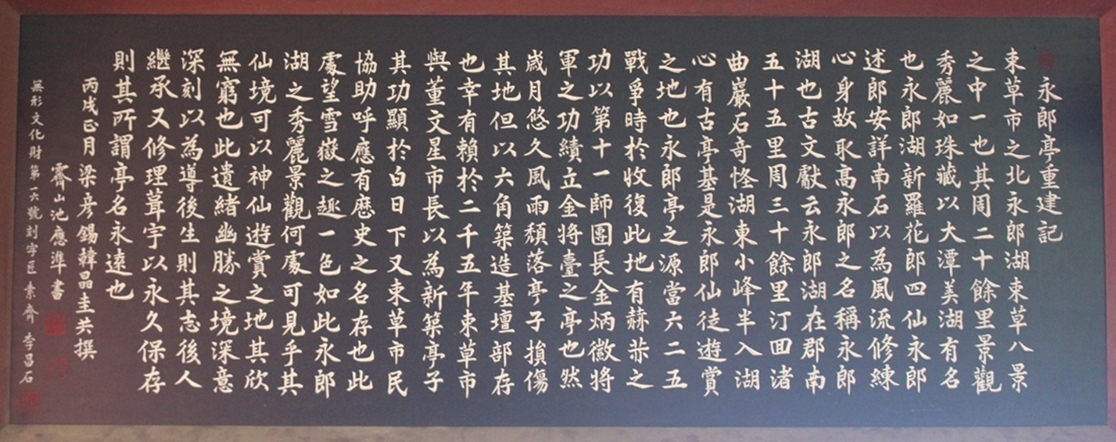 永郎亭重建記
束草市之北永郎湖束草八景
之中一也其周二十餘里景觀
秀麗如珠藏以大潭美湖有名
也永郎湖新羅花郎四仙永郎
述郎安詳南石以為風流修練
心身故取高永郎之名稱永郎
湖也古文獻云永郎湖在郡南
五十五里周三十餘里汀回渚
曲巖石奇怪湖東小峰半入湖
心有古亭基是永郎仙徒遊賞
之地也永郎亭之源當六二五
戰爭時於收復此地有赫赤之
功以第十一師團長金炳徽將
軍之功績立金將臺之亭也然
歲月悠久風雨頹落亭子損傷
其地但以六角築造基壇部存
也幸有賴於二千五年束草市
與董文星市長以為新築亭子
其功顯於白日下又束草市民
協助呼應有歷史之名存也此
處望雪嶽之趣一色如此永郎
湖之秀麗景觀何處可見乎其
仙境可以神仙遊賞之地其欣
無窮也此遺緖幽勝之境深意
深刻以為導後生則其志後人
繼承又修理葺宇以永久保存
則其所謂亭名永遠也
丙戌正月 梁彦錫 韓晶圭 共撰
霽山 池應準 書
無形文化財 第一六號 刻字匠 素齊 李昌石